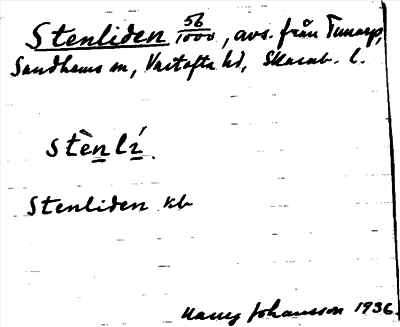 Stenliden 56/1000, avs. från Tunarp,
Sandhems sn, Vartofta hd, Skarab. l.
stènlí.
Stenliden kb
Harry Johansson 1936.